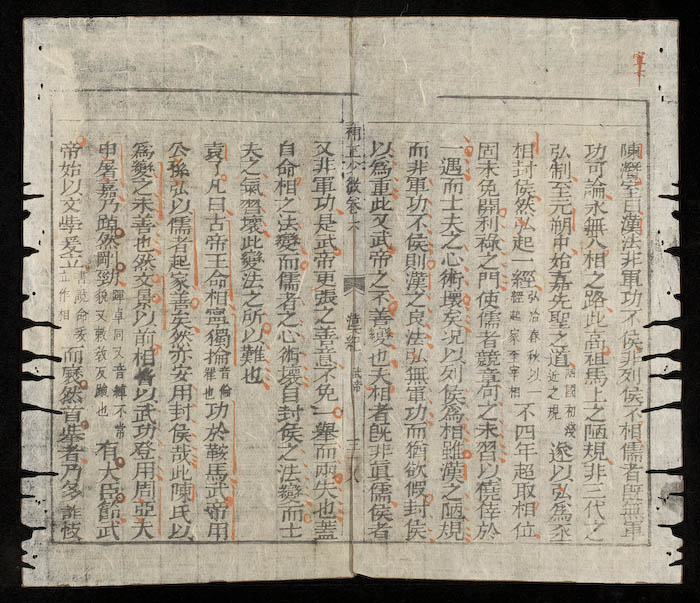 陳瓚室曰漢法非軍功不侯非列侯不相儒者既無軍
功可論永無入相之路此高祖馬上之陋規非三代之
弘制至元朔中始嘉先聖之道治國初淺近之規遂以弘爲丞
相封侯然弘起一經弘治春秋以一經起家至宰相不四年超取相位
固未免開利祿之門使儒者競章句之末習以僥倖於
一遇而士夫之心術壞矣况以列侯爲相雖漢之陋規
而非軍功不侯則漢之良法弘無軍功而猶欲假封侯
以爲重此又武帝之不善變也夫相者既非真儒侯者
又非軍功是武帝更張之善意不免一舉而兩失也蓋
自命相之法變而儒者之心術壞自封侯之法變而士
夫之氣習壞此變法之所以難也
袁了凡曰古帝王命相寧獨掄音倫擇也功於鞍馬武帝用
公孫弘以儒者起家善矣然亦安用封侯哉此陳氏以
爲變之未善也然文景以前相皆以武功登用周亞夫
申屠嘉乃踔然剛勁踔卓同又音罇不常貌又敕敎反踰也有大臣節武
帝始以文學爰立書説命爰立作相而褎然首舉者乃多詐忮
補正少微卷六
漢紀
武帝
三